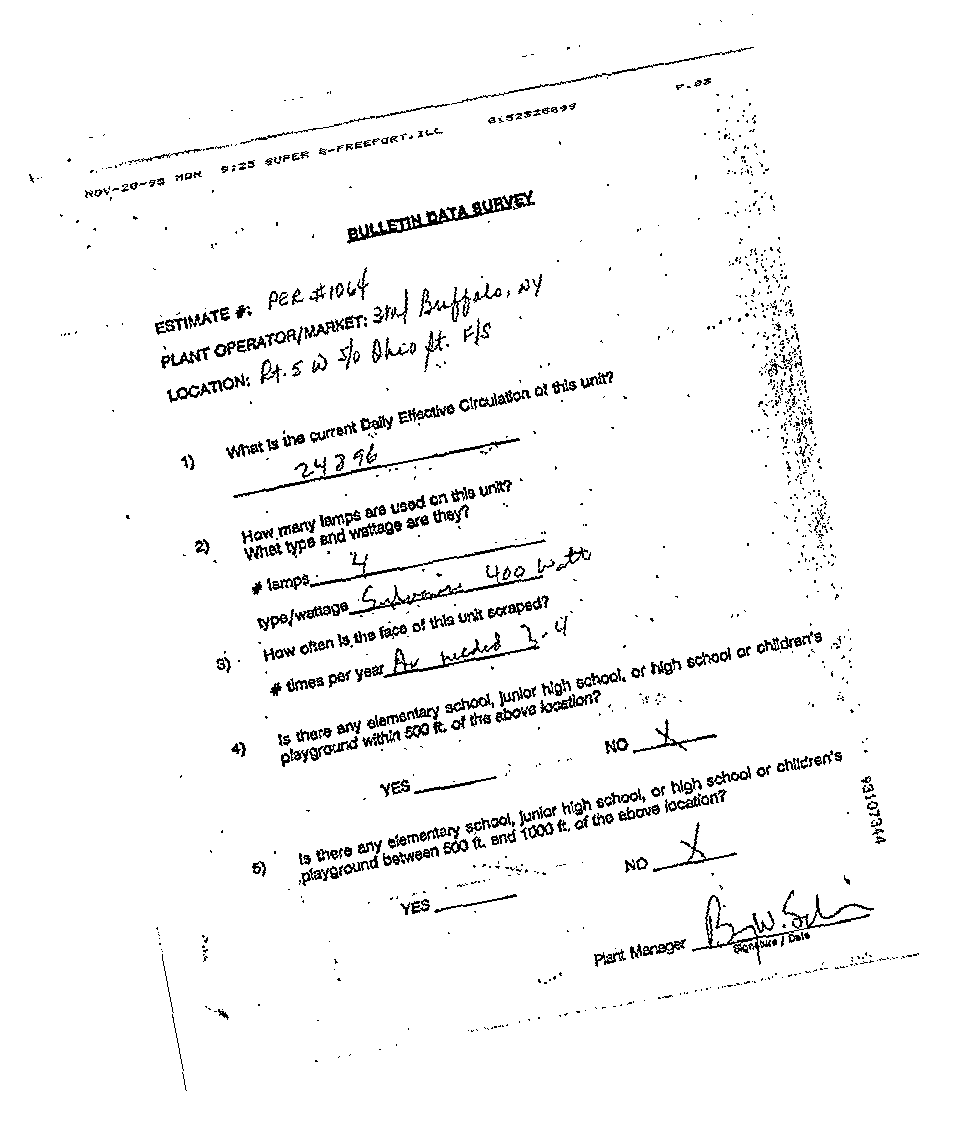 NOV-20-95 MON 9:25 SUPER 8-FREEPORT.ILL 8152326899 P.03
BULLETIN DATA SURVEY
ESTIMATE #: PER #1064
PLANT OPERATOR/MARKET: Buffalo, NY
LOCATION: Rt. 5 W S/O Ohio St. F/S
1) What is the current Daily Effective Circulation of this unit?
24296
2) How many lamps are used on this unit?
What type and wattage are they?
# lamps 4
type/wattage 400 Watt
3) How often is the face of this unit scraped?
# times per year As needed 3-4
4) Is there any elementary school, junior high school, or high school or children's
playground within 500 ft. of the above location?
YES NO X
5) Is there any elementary school, junior high school, or high school or children's
playground between 500 ft. and 1000 ft. of the above location?
YES NO X
Plant Manager
Signature / Date
93107344